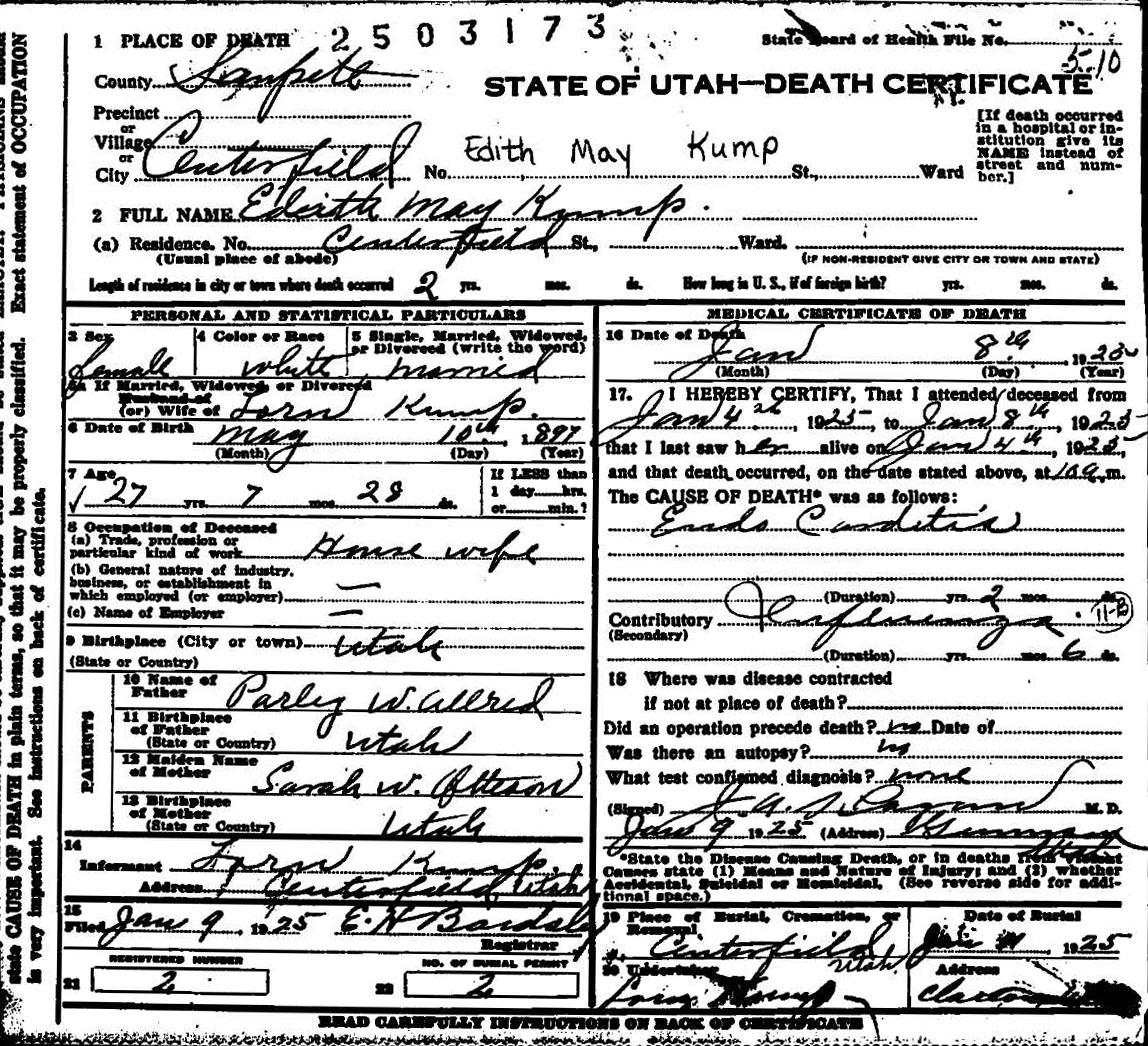 2503173
1 PLACE OF DEATH
State Board of Health File No.
5-10
County Sanpete
STATE OF UTAH—DEATH CERTIFICATE
Precinct
or
Village
or
City Centerfield No. Edith May Kump St., Ward
[If death occurred
in a hospital or in-
stitution give its
NAME instead of
street and num-
ber.]
2 FULL NAME Edith May Kump.
(a) Residence. No. Centerfield St., Ward.
(Usual place of abode)
(IF NON-RESIDENT GIVE CITY OR TOWN AND STATE)
Length of residence in city or town where death occurred 2 yrs. mos. ds. How long in U. S., if of foreign birth? yrs. mos. ds.
PERSONAL AND STATISTICAL PARTICULARS
3 Sex Female
4 Color or Race White
5 Single, Married, Widowed,
or Divorced (write the word)
Married
5a If Married, Widowed or Divorced
Husband of
(or) Wife of Lorn Kump.
6 Date of Birth May 10th, 1897
(Month) (Day) (Year)
7 Age
27 yrs. 7 mos. 28 ds.
If LESS than
1 day hrs.
or min.?
8 Occupation of Deceased
(a) Trade, profession or
particular kind of work House wife
(b) General nature of industry,
business, or establishment in
which employed (or employer) —
(c) Name of Employer —
9 Birthplace (City or town) Utah
(State or Country)
PARENTS
10 Name of
Father Parley W. Allred
11 Birthplace
of Father
(State or Country) Utah
12 Maiden Name
of Mother Sarah W. Otteson
13 Birthplace
of Mother
(State or Country) Utah
14
Informant Lorn Kump.
Address Centerfield, Utah
15
Filed Jan 9, 1925 E. H. Bardsley
Registrar
REGISTERED NUMBER
21 2
NO. OF BURIAL PERMIT
22 2
MEDICAL CERTIFICATE OF DEATH
16 Date of Death
Jan 8th 1925
(Month) (Day) (Year)
17. I HEREBY CERTIFY, That I attended deceased from
Jan 4th, 1925, to Jan 8th, 1925
that I last saw her alive on Jan 4th, 1925,
and that death occurred, on the date stated above, at 10 a.m.
The CAUSE OF DEATH* was as follows:
Endo Carditis
(Duration) yrs. 2 mos. ds.
Contributory Influenza 11-B
(Secondary)
(Duration) yrs. mos. 6 ds.
18 Where was disease contracted
if not at place of death?
Did an operation precede death? no Date of
Was there an autopsy? no
What test confirmed diagnosis? none
(Signed) J. A. M. D.
Jan 9 1925 (Address) Gunnison
Utah
*State the Disease Causing Death, or in deaths from Violent
Causes state (1) Means and Nature of Injury; and (2) whether
Accidental, Suicidal or Homicidal. (See reverse side for addi-
tional space.)
19 Place of Burial, Cremation, or
Removal
Centerfield,
Utah
Date of Burial
Jan 11 1925
20 Undertaker
Address
READ CAREFULLY INSTRUCTIONS ON BACK OF CERTIFICATE
state CAUSE OF DEATH in plain terms, so that it may be properly classified. Exact statement of OCCUPATION
is very important. See instructions on back of certificate.